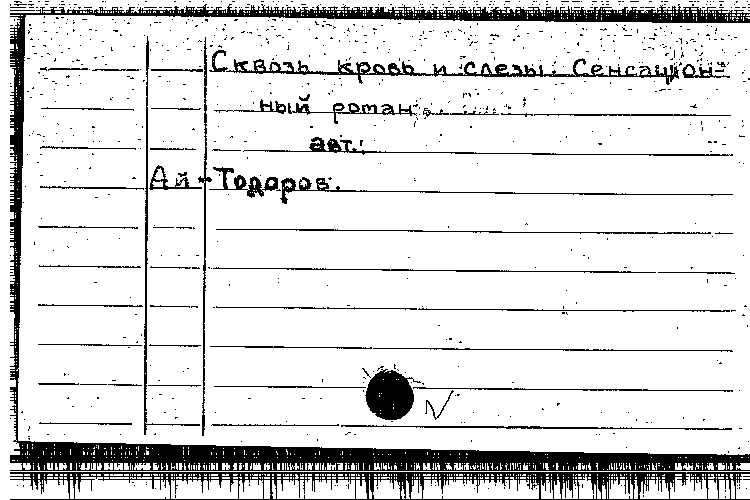 Сквозь кровь и слезы. Сенсацион-
ный роман
авт.:
Ай-Тодоров.